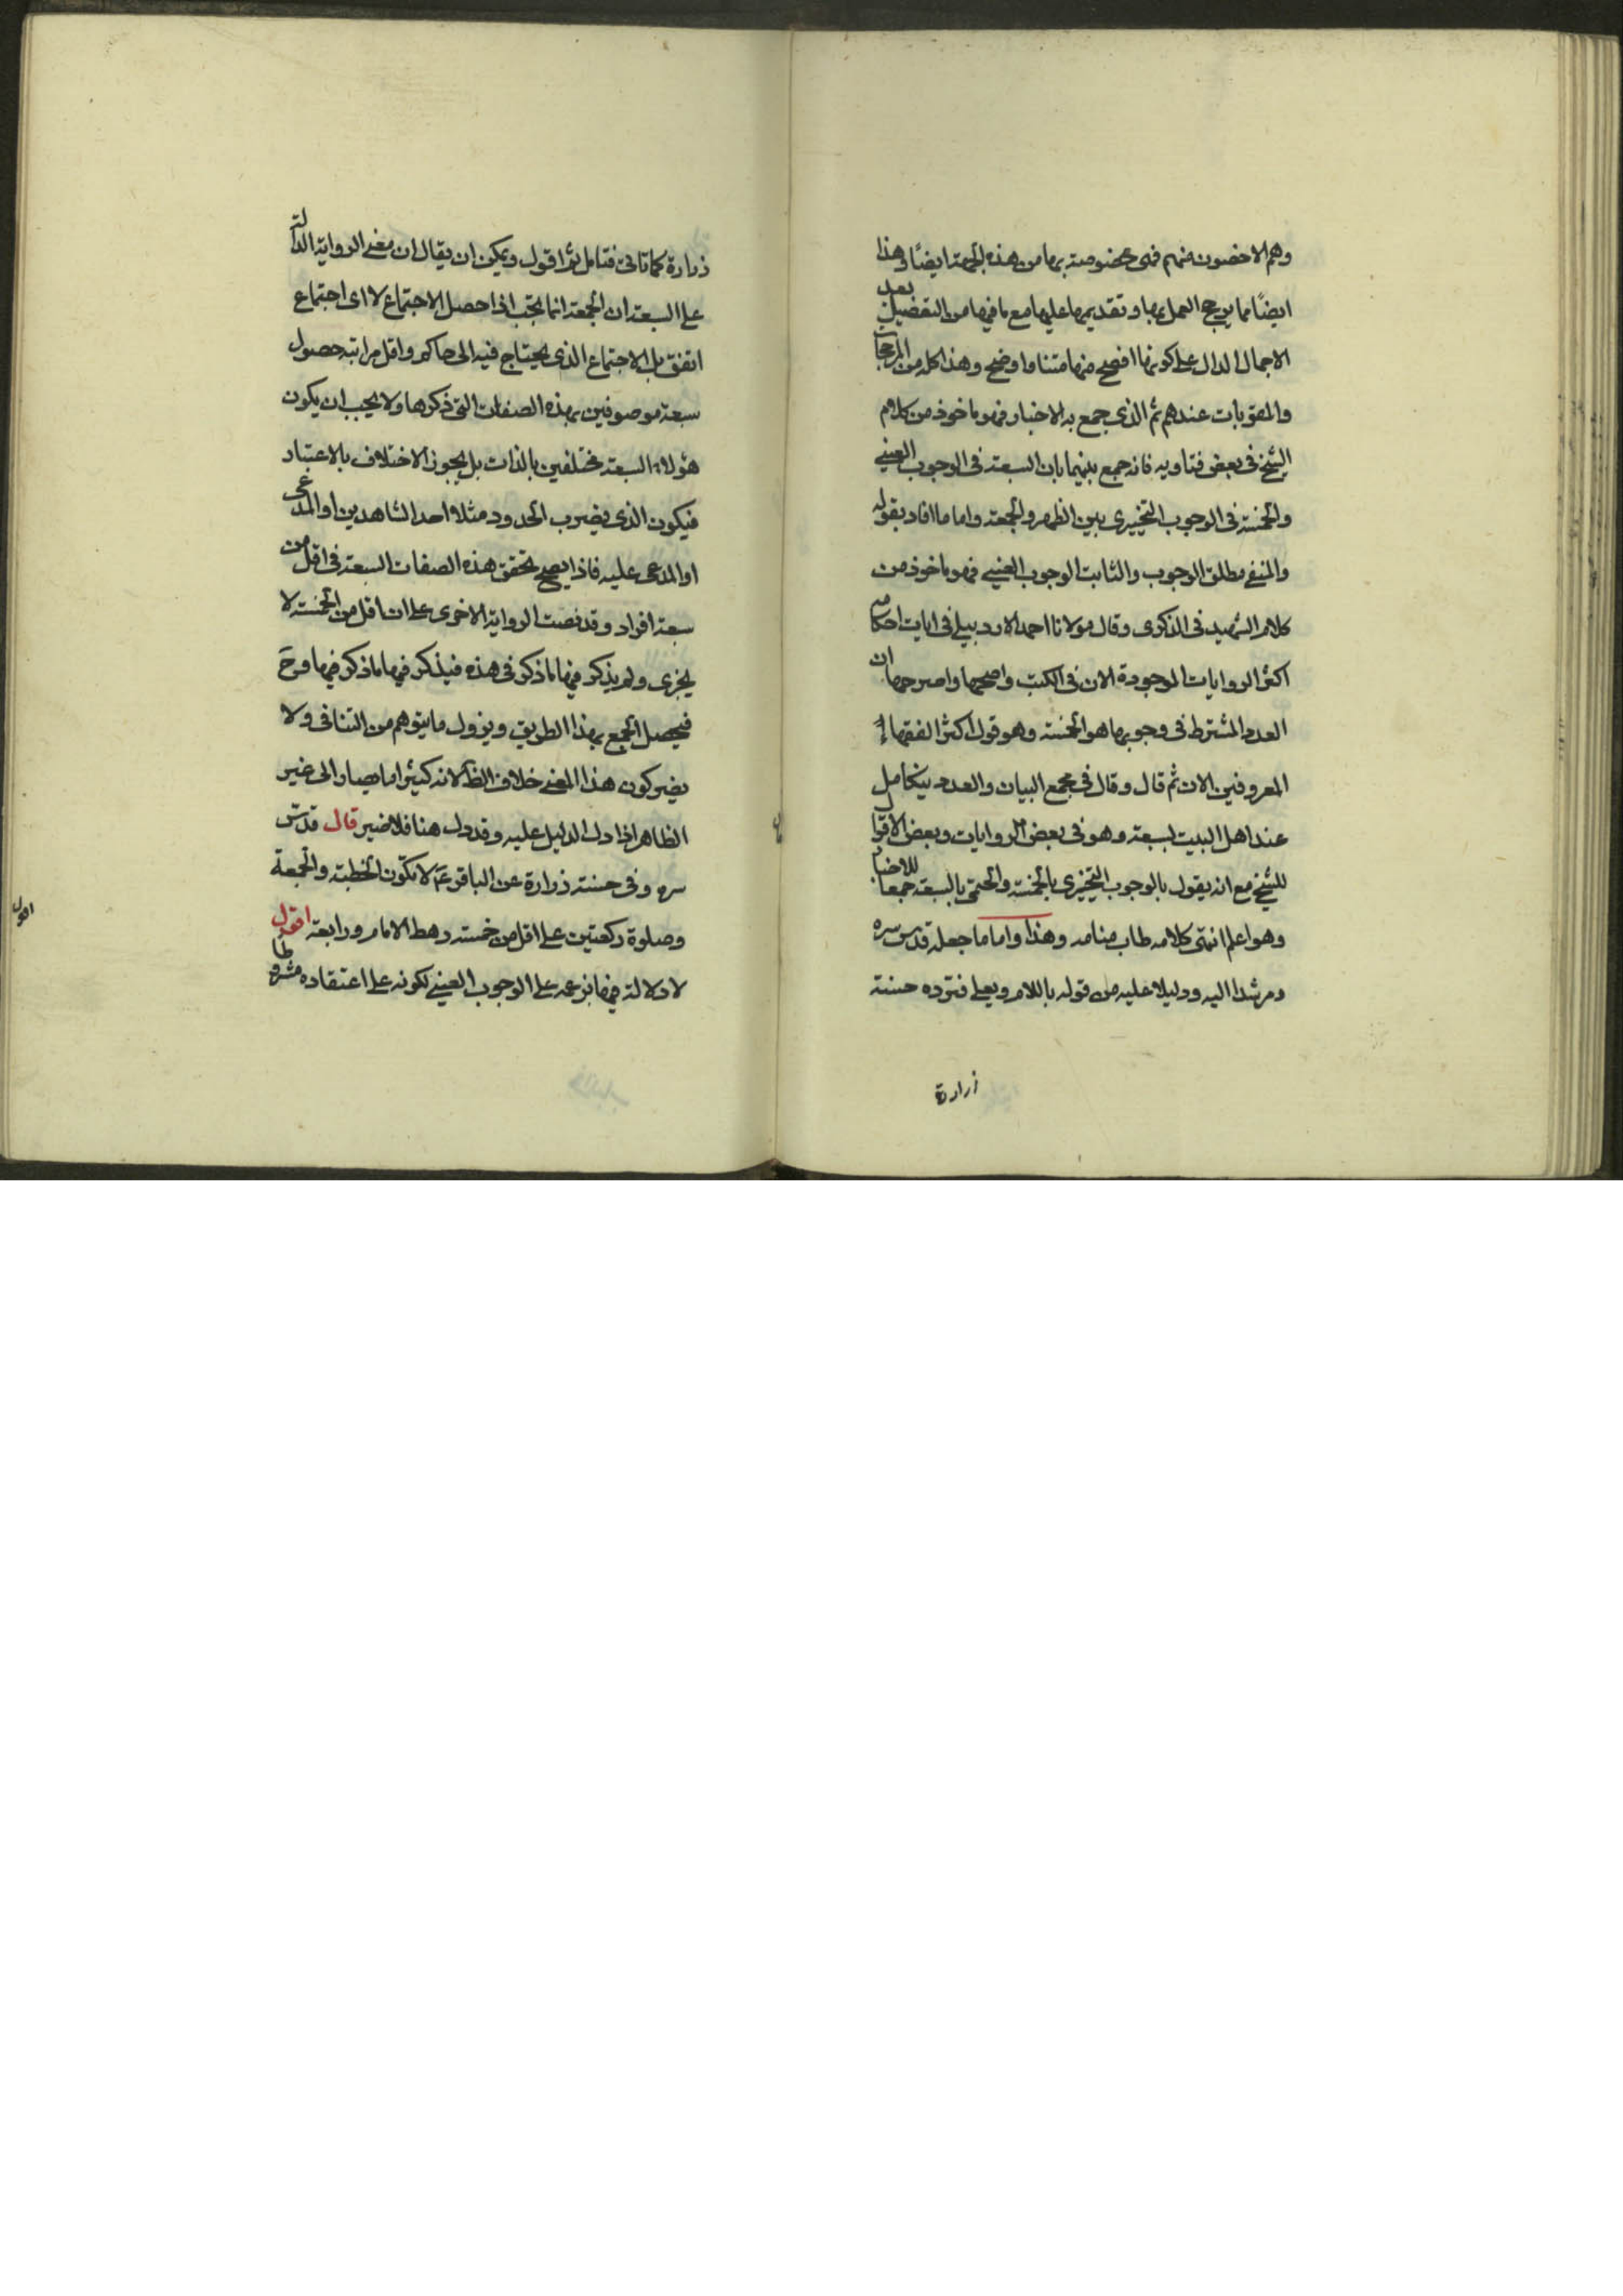 وهم الاخصون منهم فهى مخصوصة بها من هذه الجهة ايضًا وهذا
ايضًا مما يرجح العمل بها وتقديمها عليها مع ما فيها من التفصيل بعد
الاجمال الدال على كونها افصح منها متنا واوضح وهذا كله من المرجحات
والمقويات عندهم ثم الذى جمع به الاخبار فهو ماخوذ من كلام
الشيخ فى بعض فتاويه فانه جمع بينهما بان السبعة فى الوجوب العينى
والخمسة فى الوجوب التخييرى بين الظهر والجمعة واما ما افاد بقوله
والمنفى مطلق الوجوب والثابت الوجوب العينى فهو ماخوذ من
كلام الشهيد فى الذكرى وقال مولانا احمد الاردبيلى فى ايات احكامه
اكثر الروايات الموجودة الان فى الكتب واصحها واصرحها ان
العدد المشترط فى وجوبها هو الخمسة وهو قول اكثر الفقهاء
المعروفين الان ثم قال وقال فى مجمع البيان والعدد يتكامل
عند اهل البيت بسبعة وهو فى بعض الروايات وبعض الاقوا
للشيخ مع انه يقول بالوجوب التخييرى بالخمسة والحتمى بالسبعة جمعا للاخبار
وهو اعلم انتهى كلامه طاب منامه وهذا واما ما جعله قدس سره
مرشدا اليه ودليلا عليه من قوله باللام وبعلى فترده حسنة
زرارة
زرارة كما تاتى فتامل ثم اقول ويمكن ان يقال ان معنى الرواية الدالة
على السبعة ان الجمعة انما يجب اذا حصل الاجتماع لا اى اجتماع
اتفق بل الاجتماع الذى يحتاج فيه الى حاكم واقل مراتبه حصول
سبعة موصوفين بهذه الصفات التى ذكرها ولا يجب ان يكون
هؤلاء السبعة مختلفين بالذات بل يجوز الاختلاف بالاعتبار
فيكون الذى يضرب الحدود مثلا احد الشاهدين او المدعى
او المدعى عليه فاذا يصح تحقق هذه الصفات السبعة فى اقل من
سبعة افراد وقد نصت الرواية الاخرى على ان اقل من الخمسة لا
يجزى ولم يذكر فيها ما ذكر فى هذه فيذكر فيها ما ذكر فيها وح
فيحصل الجمع بهذا الطريق ويزول ما يتوهم من التنافى ولا
يضر كون هذا المعنى خلاف الظ لانه كثيرا ما يصار الى غير
الظاهر اذا دل الدليل عليه وقد دل هنا فلا ضير قال قدس
سره وفى حسنة زرارة عن الباقر ع لا تكون الخطبة والجمعة
وصلوة ركعتين على اقل من خمسة رهط الامام ورابعة اقول
لا دلالة فيها بزعمه على الوجوب العينى لكونه على اعتقاده مشروطا
اقول